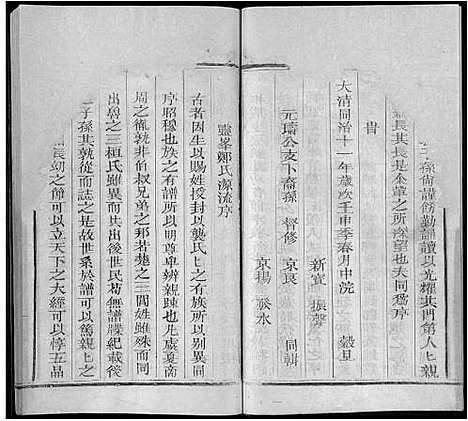 孫尚謹飭勤誦讀以光耀其門第人人親
長其長是余輩之所深望也夫同爲序
旹
大清同治十一年歲次壬申季春月中浣 穀旦
新宣 振聲
元璹公支下裔孫 督修 京良 同輯
京揚 張水
靈峯鄭氏源流序
古者因生以賜姓授封以襲氏氏之有族所以别異同
序昭穆也族之有譜所以明尊卑辨親踈也先歲夏商
周之權孰非伯叔兄弟之邦若楚之三閭姓雖殊而同
出魯之三桓氏雖異而共出後世民苟無譜牒紀載後
之子孫其孰從而誌之是故世系於譜可以篤親親之
長幼之倫可以立天下之大經可以惇五品